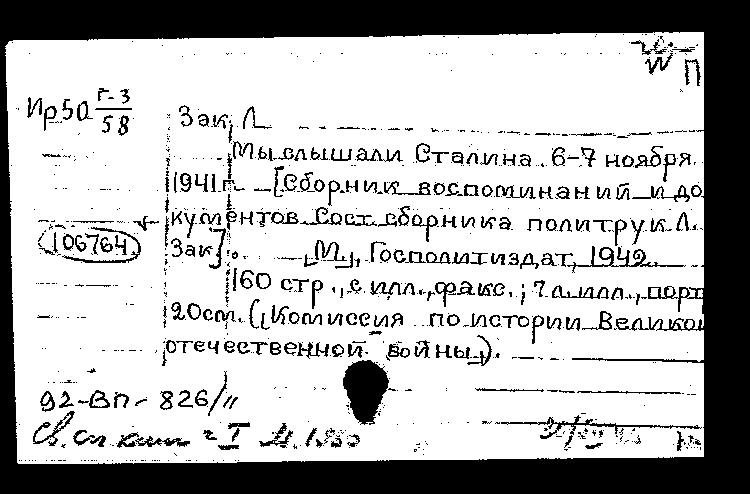 П
Ир50 Г-3
58
Зак, Л
Мы слышали Сталина. 6-7 ноября
1941 г. [Сборник воспоминаний и до
кументов. Сост. сборника политрук Л.
106764
Зак]. М., Госполитиздат, 1942.
160 стр., с илл., факс.; 7 л. илл., порт
20см. (Комиссия по истории Великой
отечественной войны).
92-ВП-826/11
Св. сп. I